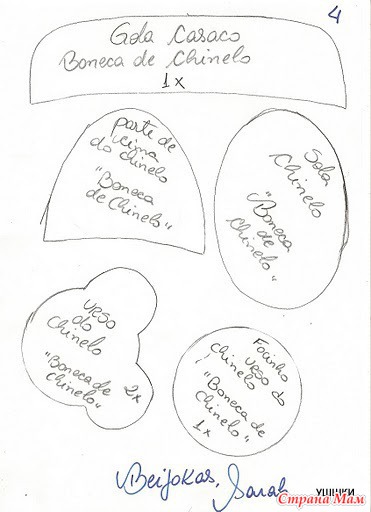 4
Gola Casaco
Boneca de Chinelo
1x
parte de
cima
do chinelo
"Boneca
de Chinelo"
Sola
Chinelo
"Boneca
de
Chinelo"
urso
do
chinelo
"Boneca de
Chinelo"
2x
Focinho
urso do
chinelo
"Boneca de
Chinelo"
1x
Beijokas,
Sarah
ушки
Страна Мам